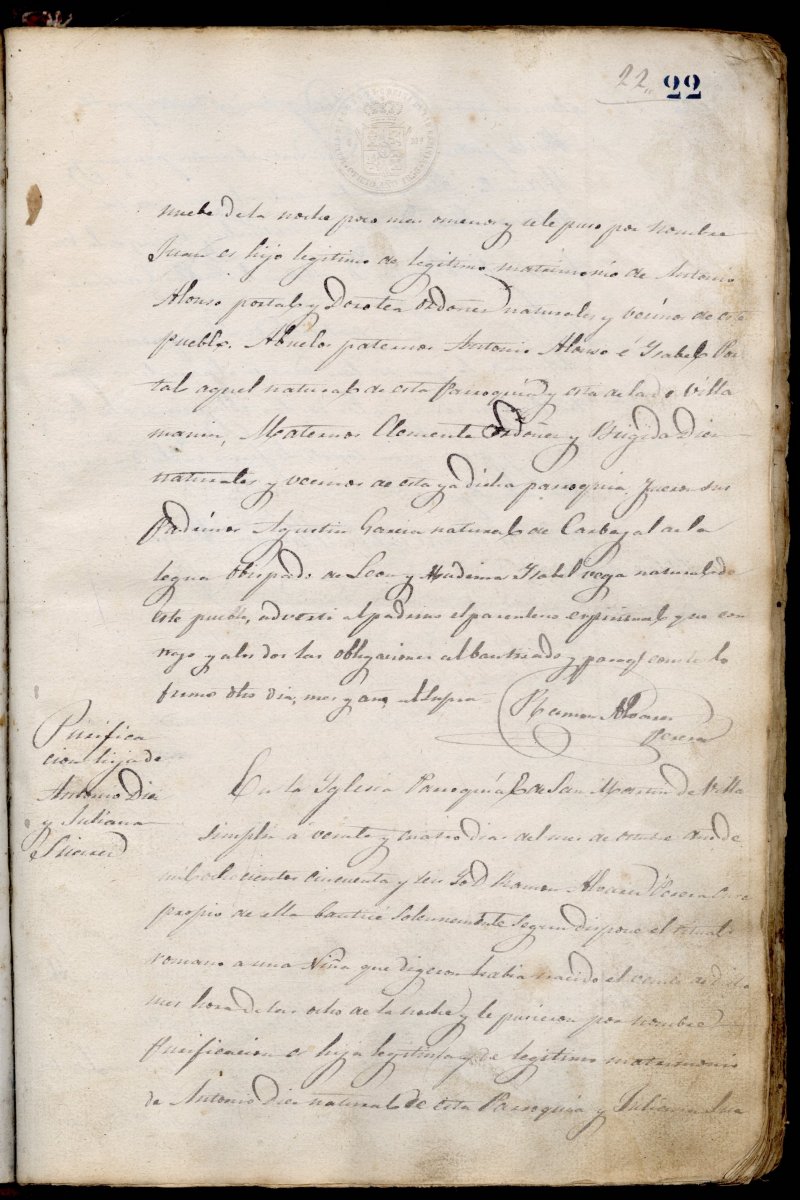 22,, 22
nuebe de la noche poco mas omenos y sele puso por nombre
Juan es hijo legitimo de legitimo matrimonio de Antonio
Alonso portal y Dorotea Ordoñez naturales y vecinos de este
pueblo. Abuelos paternos Antonio Alonso é Ysabel Por
tal aquel natural de esta Parroquia y esta de la de Villa
manin, Maternos Clemente Ordoñez y Brigida Diez
naturales y vecinos de esta ya dicha parroquia fueron sus
Padrinos Agustin Garcia natural de Carbajal de la
legua Obispado de Leon y Madrina Ysabel vega natural de
este pueblo, adverti al padrino el parentesco espiritual que con
trajo y alos dos las obligaciones al bautizado y paraq conste lo
firmo dho dia, mes y año, ut supra
Ramon Alvarez
Perera
Purifica
cion hija de
Antonio Diez
y Juliana
Suarez
En la Yglesia Parroquial de San Martin de Villa
simpliz a veinte y cuatro dias del mes de octubre año de
mil ochocientos cincuenta y seis Yo D Ramon Alvarez Perera Cura
propio de ella bautice Solemnemente segun dispone el ritual
romano a una Niña que digeron habia nacido el veinte de dicho
mes hora de las ocho de la noche y le pusieron por nombre
Purificacion es hija legitima y de legitimo matrimonio
de Antonio Diez natural de esta Parroquia y Juliana Sua